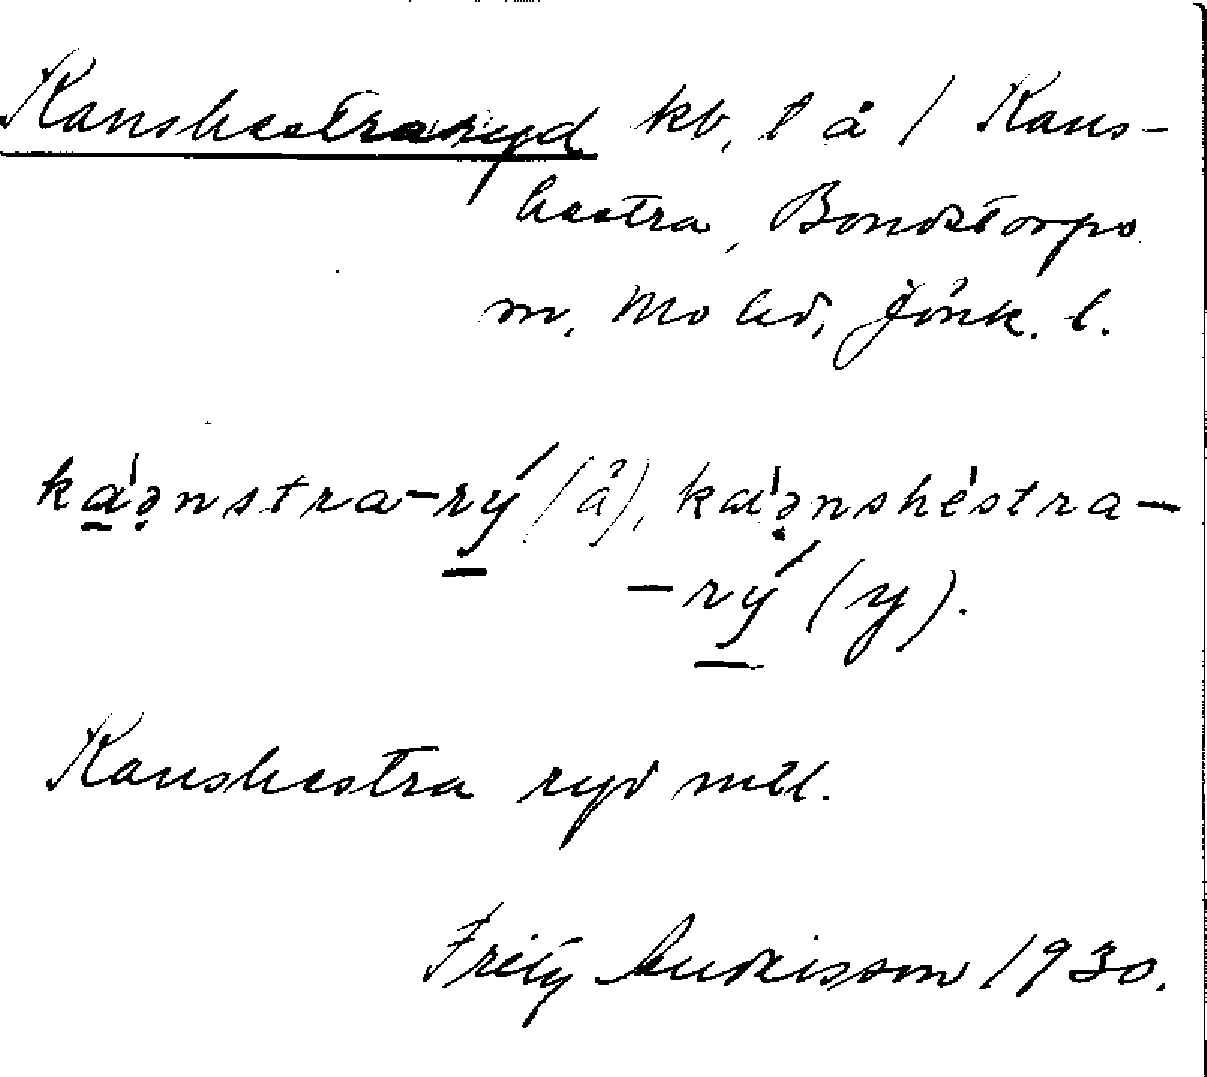 Kanshestraryd kb, l å / Kans-
hestra, Bondstorps
m, Mo hd, Jönk. l.
ka̱'ə̣nstra-rý̱ (å), ka'ə̣nshéstra-
-rý̱ (y).
Kanshestra ryd mtl.
1930.